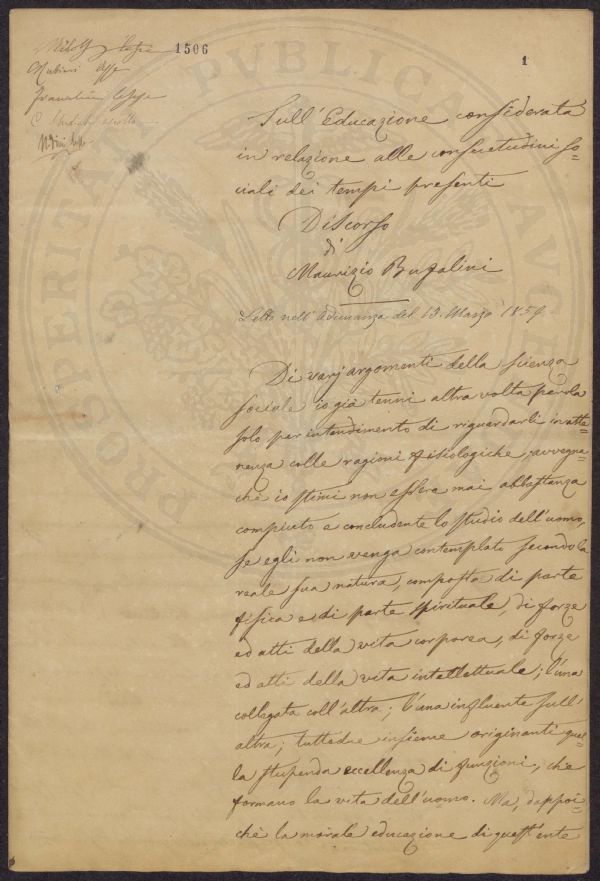 1506
1
Sull'Educazione considerata
in relazione alle consuetudini so=
ciali dei tempi presenti
Discorso
di
Maurizio Bufalini
Letto nell'Adunanza del 13. Marzo 1859.
Di varj argomenti della scienza
sociale io già tenni altra volta parola
solo per intendimento di riguardarli in atte=
nenza colle ragioni fisiologiche, avvegna=
chè io stimi non essere mai abbastanza
compiuto e concludente lo studio dell'uomo,
se egli non venga contemplato secondo la
reale sua natura, composta di parte
fisica e di parte spirituale, di forze
ed atti della vita corporea, di forze
ed atti della vita intellettuale; l'una
collegata coll'altra; l'una influente sull'
altra; tuttedue insieme originanti quel=
la stupenda eccellenza di funzioni, che
formano la vita dell'uomo. Ma, dappoi=
chè la morale educazione di quest'ente
PROSPERITATI PUBLICAE AUG